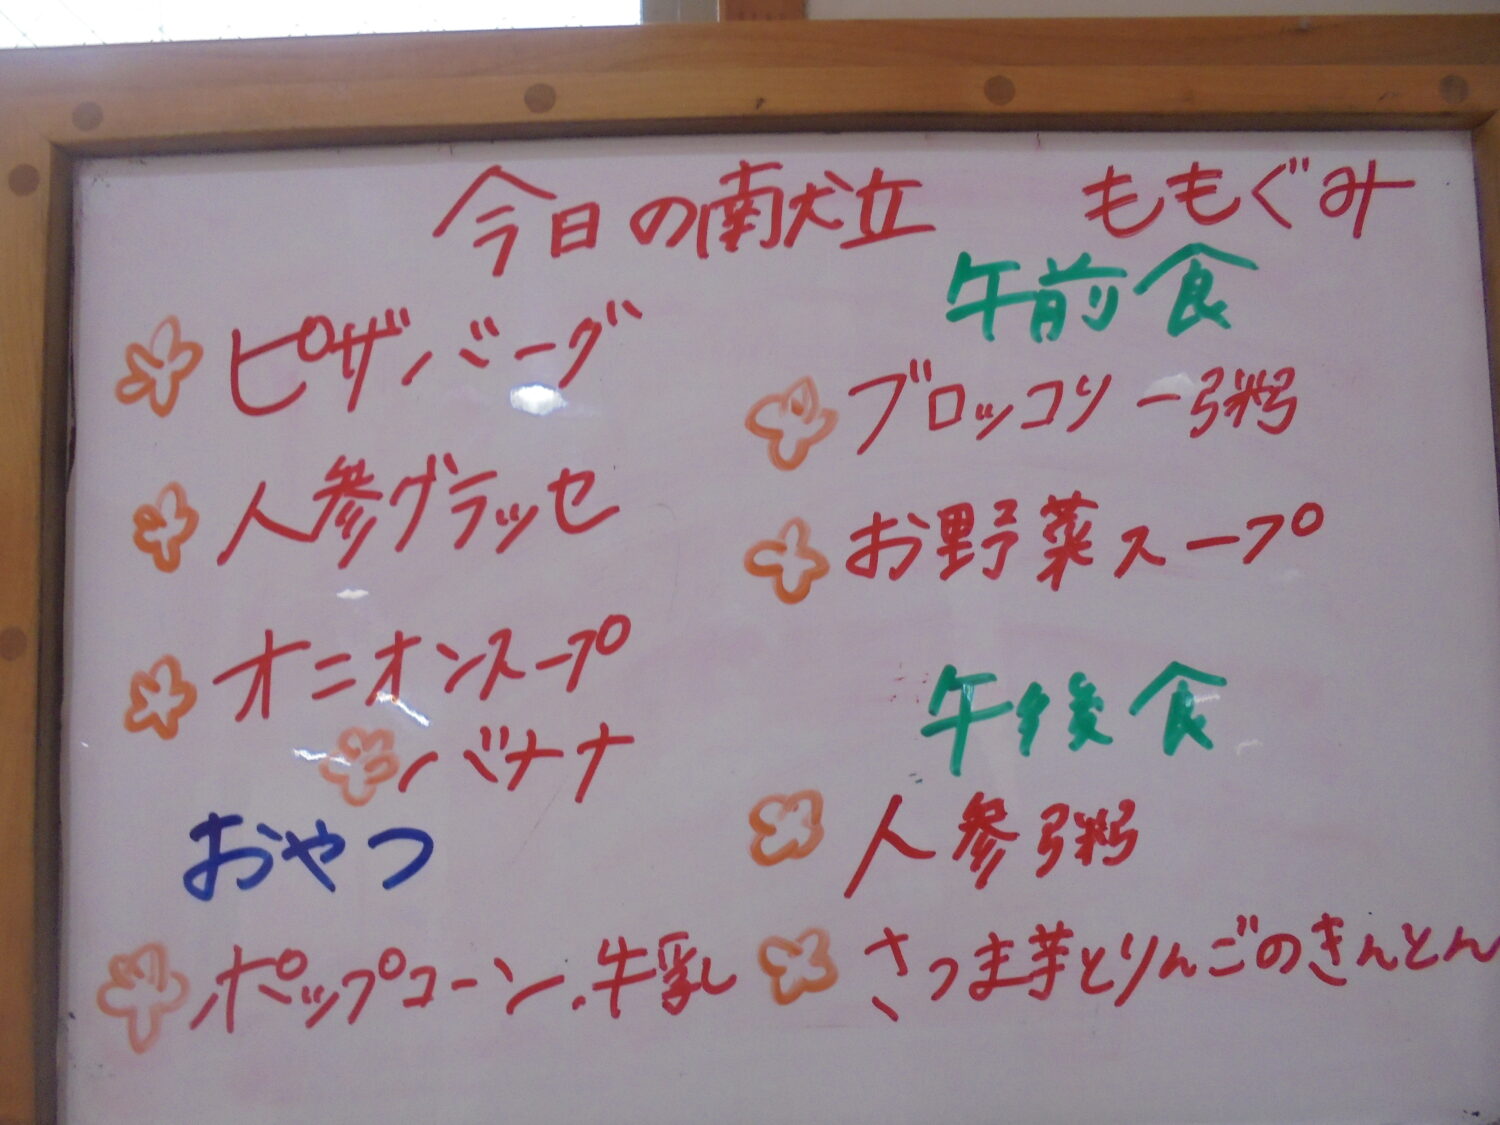 今日の献立
ピザバーグ
人参グラッセ
オニオンスープ
バナナ
おやつ
ポップコーン.牛乳
ももぐみ
午前食
ブロッコリー粥
お野菜スープ
午後食
人参粥
さつま芋とりんごのきんとん